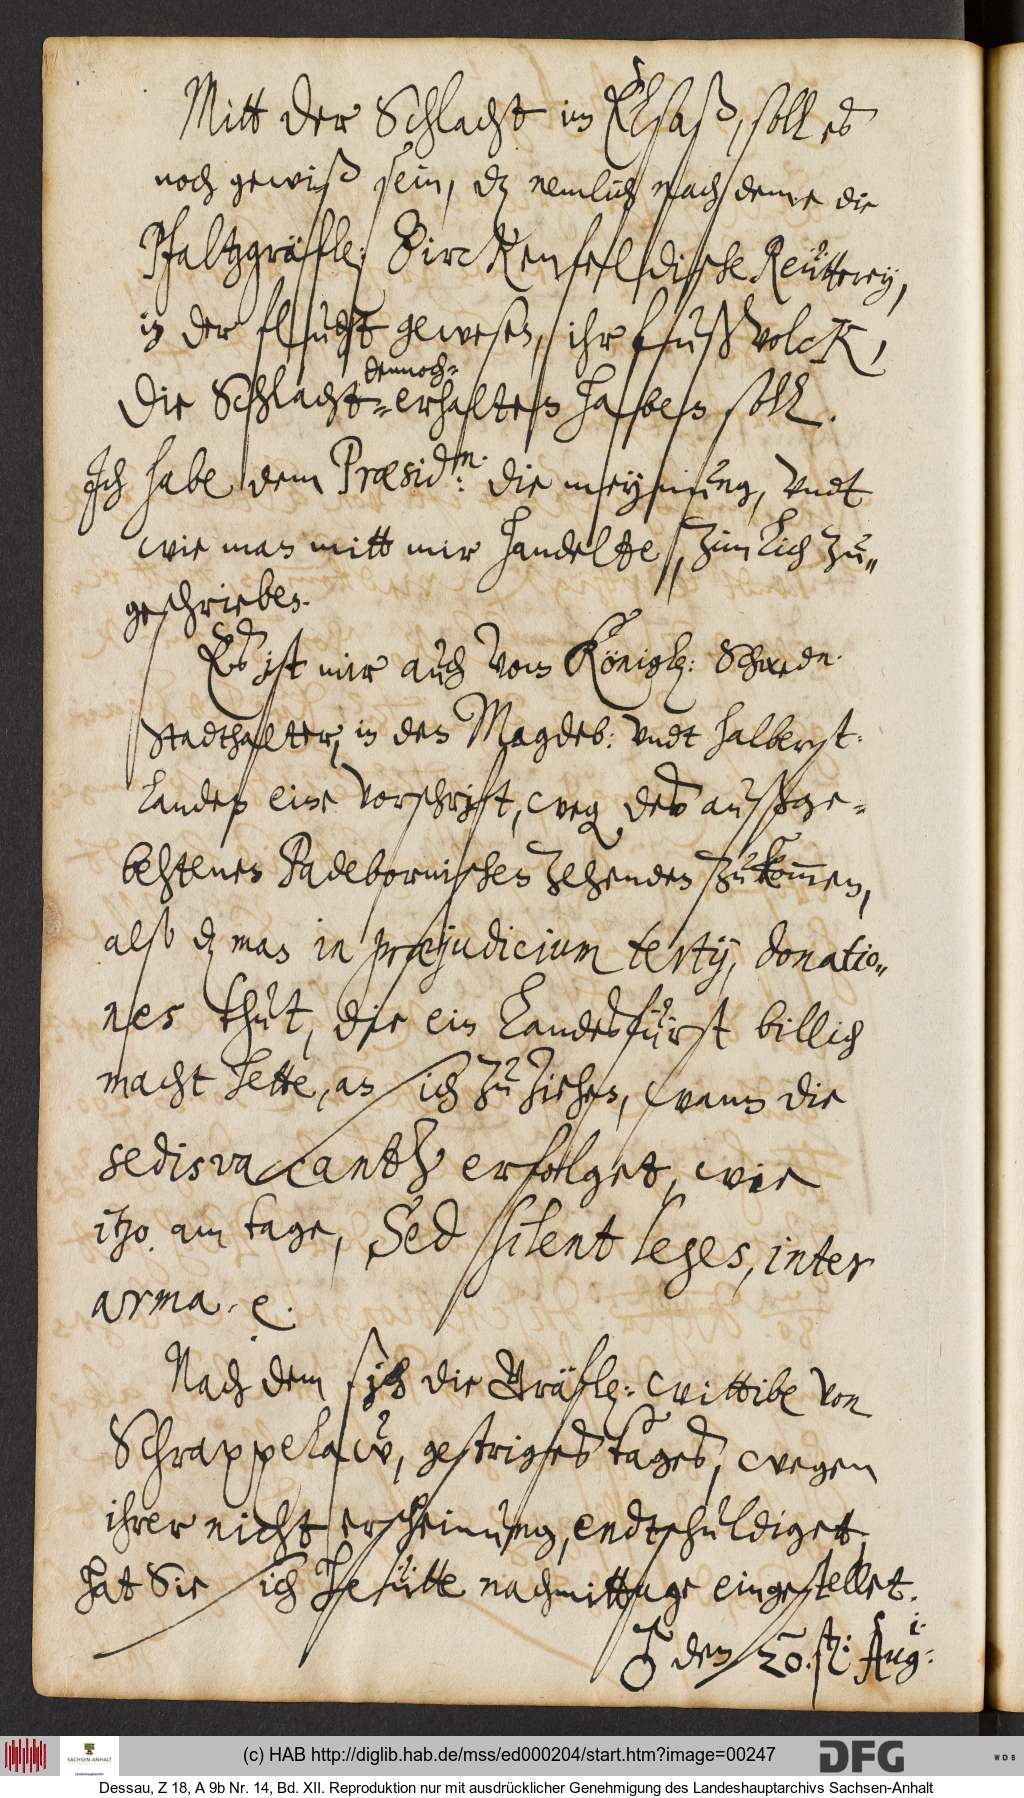 Mitt der Schlacht im Elsaß, soll es
noch gewiß sein, dz nemlich nach deme die
Pfaltzgräfle: Birckenfeldische Reütterey,
in der flucht gewesen, ihr fußvolck,
dennoch=
die Schlacht=erhalten haben soll.
Ich habe dem Præsid.en: die meynung, vndt
wie man mitt mir handelte, zimlich zu„
geschrieben.
Es ist mir auch vom Königlz: Schwedn.
Stadthalter, in den Magdeb: vndt halberst:
Landen eine vorschrift, weg des außge=
behtenen Padebornischen Zehenden zukommen,
alß dz man in præjudicium tertij, donatio„
nes thut, die ein Landesfürst billich
macht hette, an sich zu ziehen, wann die
sedisvacantz erfolget, wie
itzo am tage, Sed silent leges, inter
arma. e.
Nach dem sich die Gräflz: wittibe von
Schrappelaw, gestriges tages, wegen
ihrer nicht erscheinung, endtschuldiget,
hat Sie sich heütte nachmittage eingestellet.
♂ den 20.st: Augi:
(c) HAB http://diglib.hab.de/mss/ed000204/start.htm?image=00247
SACHSEN-ANHALT
Landeshauptarchiv
DFG
WDB
Dessau, Z 18, A 9b Nr. 14, Bd. XII. Reproduktion nur mit ausdrücklicher Genehmigung des Landeshauptarchivs Sachsen-Anhalt